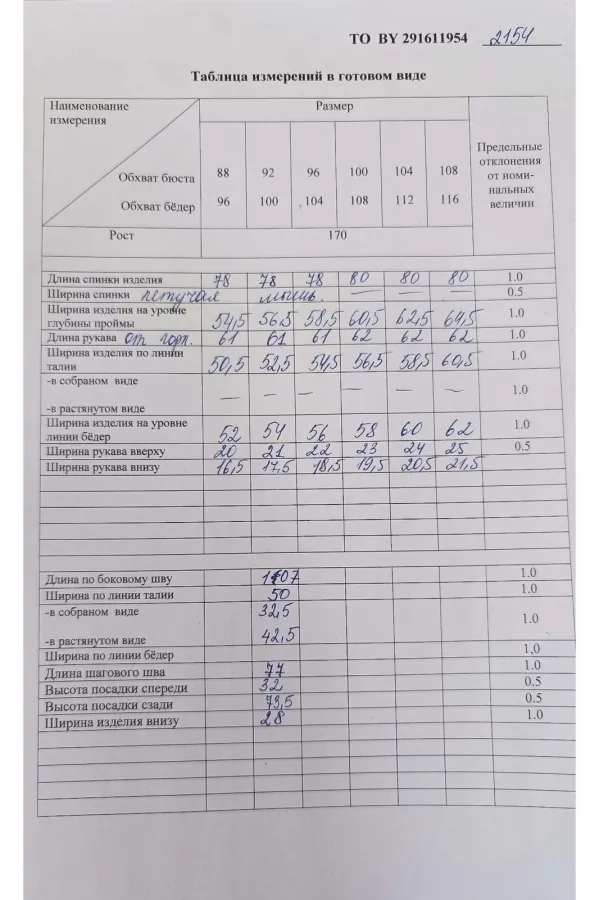 ТО BY 291611954 2154
Таблица измерений в готовом виде
Наименование измерения
Размер
Предельные отклонения от номи-нальных величин
Обхват бюста 88 92 96 100 104 108
Обхват бёдер 96 100 104 108 112 116
Рост 170
Длина спинки изделия 78 78 78 80 80 80 1.0
Ширина спинки летучая мышь. — — — 0.5
Ширина изделия на уровне
глубины проймы 54,5 56,5 58,5 60,5 62,5 64,5 1.0
Длина рукава от горл. 61 61 61 62 62 62 1.0
Ширина изделия по линии
талии 50,5 52,5 54,5 56,5 58,5 60,5 1.0
-в собраном виде — — — — — — 1.0
-в растянутом виде
Ширина изделия на уровне
линии бёдер 52 54 56 58 60 62 1.0
Ширина рукава вверху 20 21 22 23 24 25 0.5
Ширина рукава внизу 16,5 17,5 18,5 19,5 20,5 21,5
Длина по боковому шву 107 1.0
Ширина по линии талии 50 1.0
-в собраном виде 32,5 1.0
-в растянутом виде 42,5
Ширина по линии бёдер 1,0
Длина шагового шва 77 1.0
Высота посадки спереди 32 0.5
Высота посадки сзади 0.5
Ширина изделия внизу 28 1.0